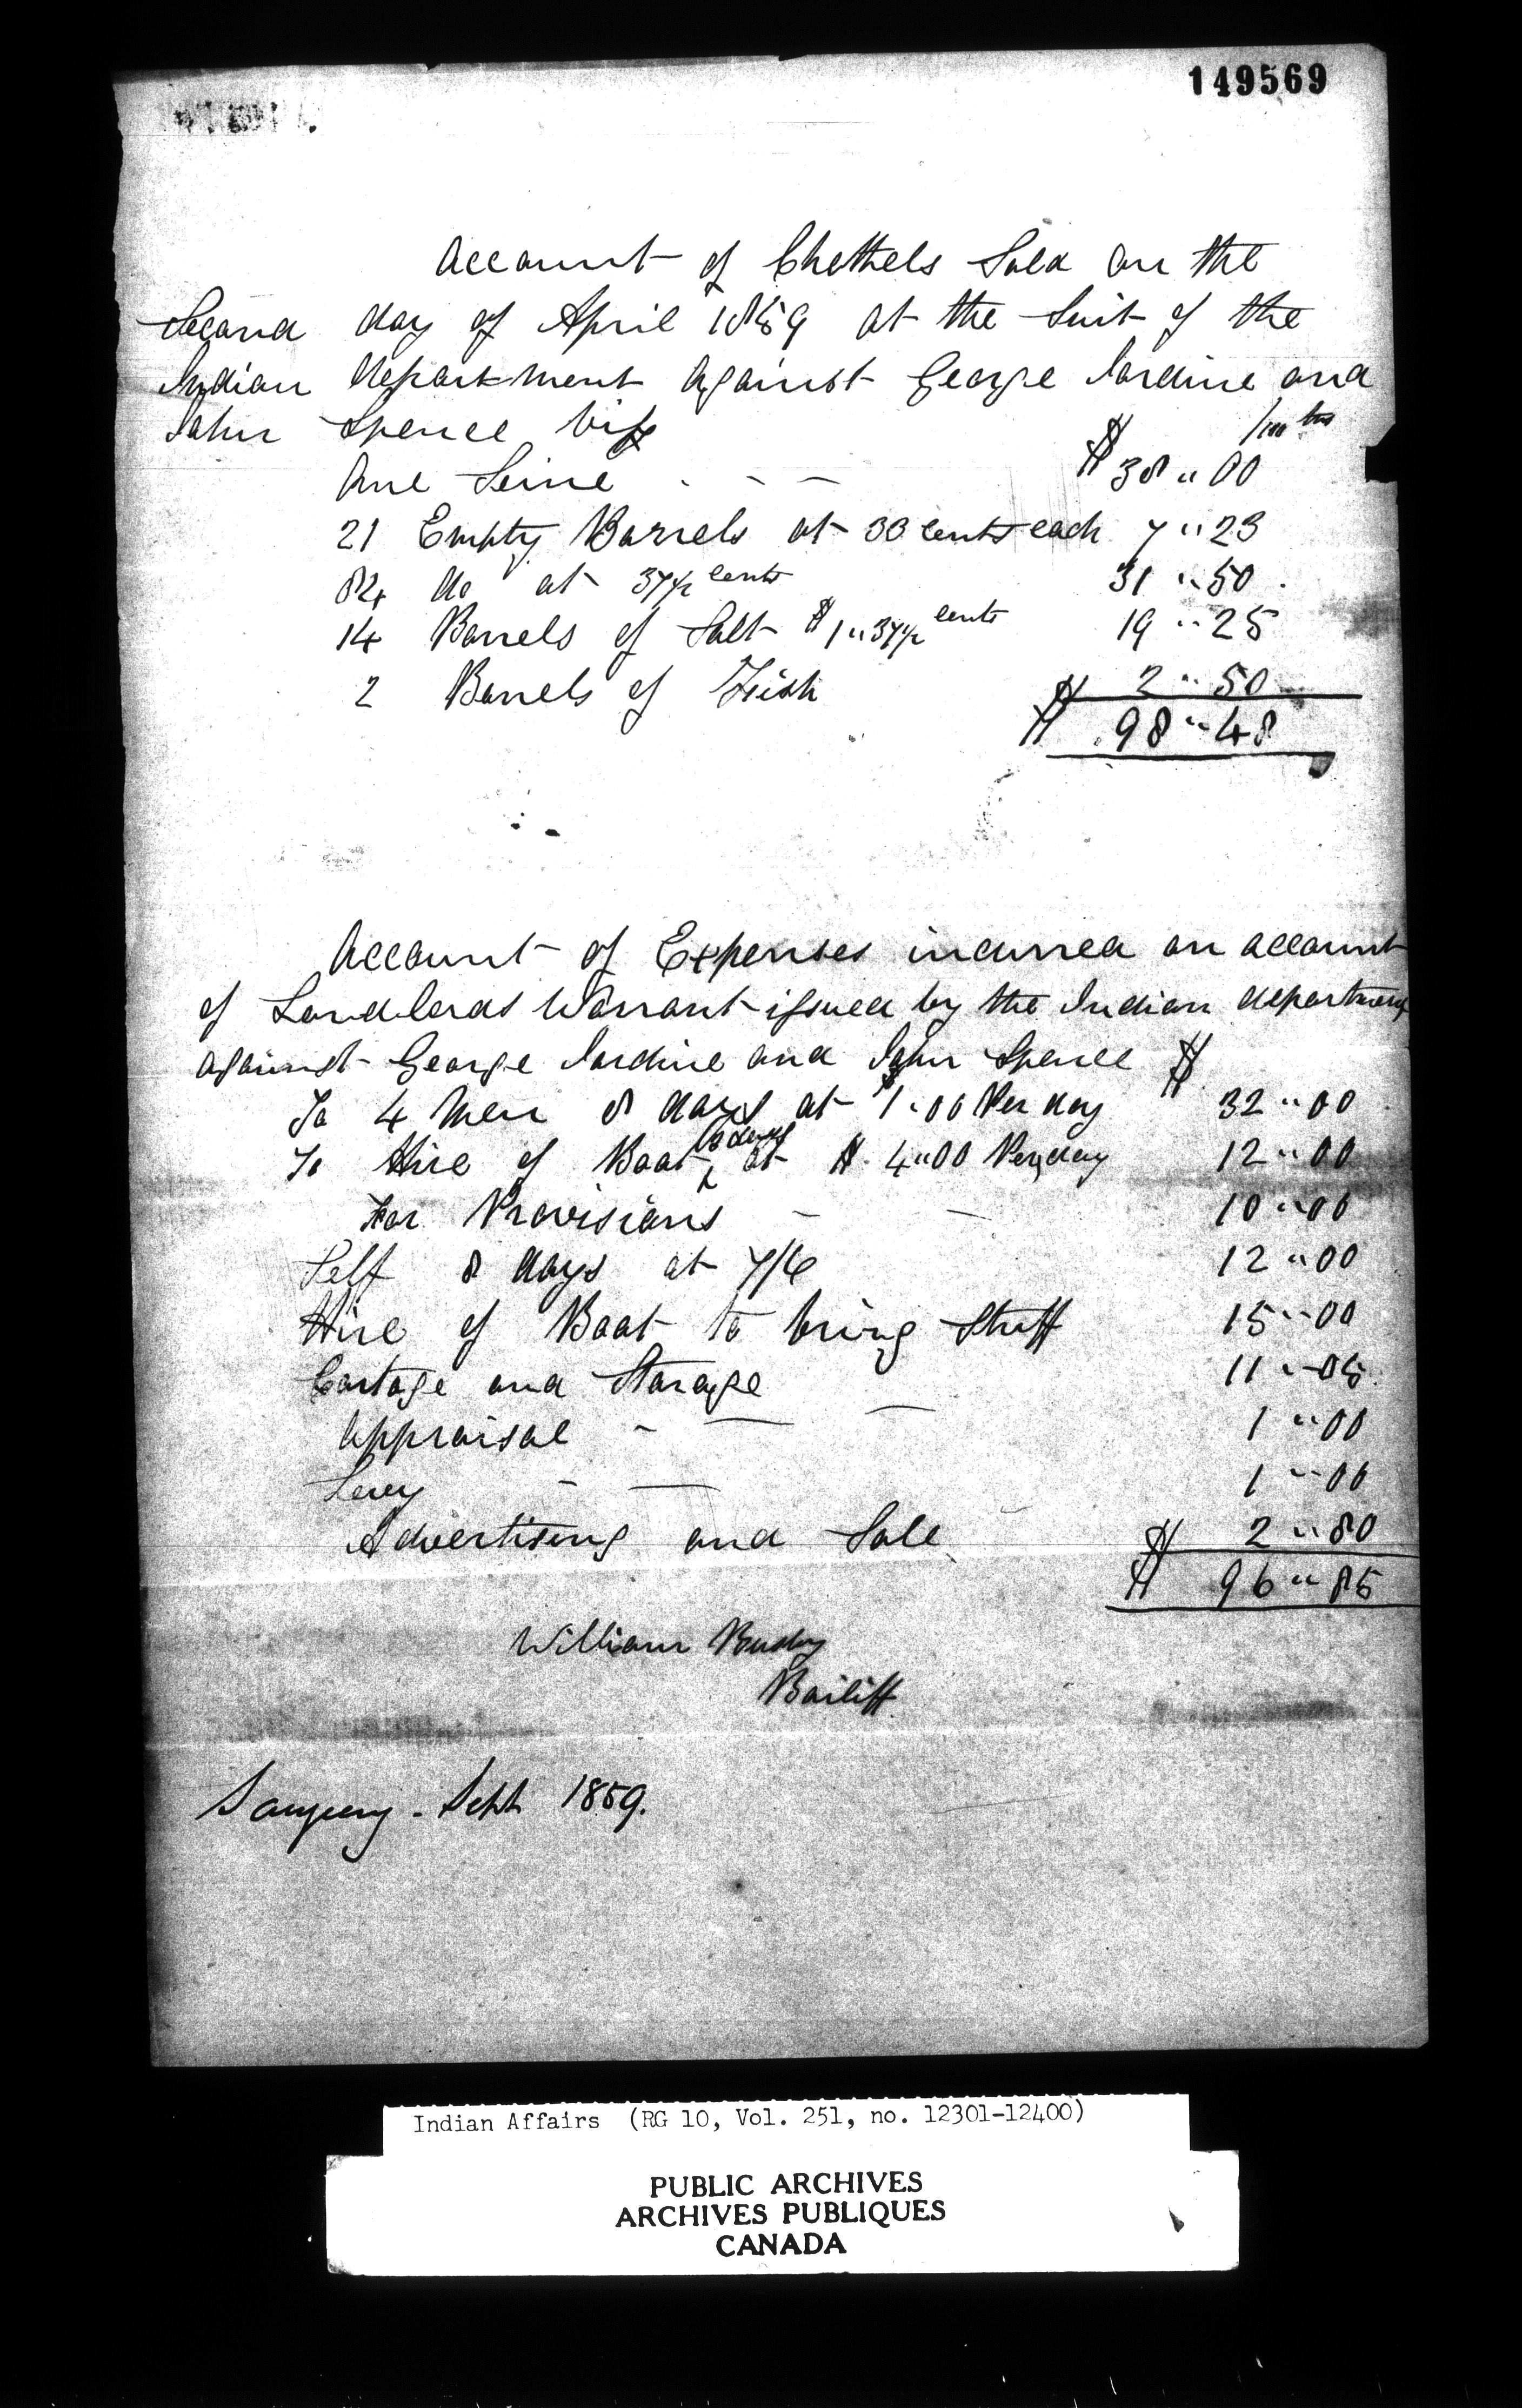 149569
Account of Chethels Sold on the
Second day of April 1859 at the Suit of the
Indian department against George Jardine and
John Spence viz
$ /100ths
One Seine - - - $ 38 " 00
21 Empty Barrels at 33 cents each 7 " 23
84 do at 37½ cents 31 " 50
14 Barrels of Salt $1 " 37½ cents 19 " 25
2 Barrels of Fish $ 2 " 50
$ 98 " 48
Account of Expenses incurred on account
of Landlords Warrant issued by the Indian department
against George Jardine and John Spence $
To 4 Men 8 days at $1 " 00 Per day 32 " 00
To Hire of Boat 3 days at $ 4 " 00 Per day 12 " 00
For Provisions - - 10 " 00
Self 8 days at 7/6 12 " 00
Hire of Boat to bring Stuff 15 " 00
Cartage and Storage 11 " 05
Appraisal - — — 1 " 00
Levy - — 1 " 00
Advertising and Sale $ 2 " 80
$ 96 " 85
William Busby
Bailiff.
Saugeeng - Sept 1859.
Indian Affairs (RG 10, Vol. 251, no. 12301-12400)
PUBLIC ARCHIVES
ARCHIVES PUBLIQUES
CANADA